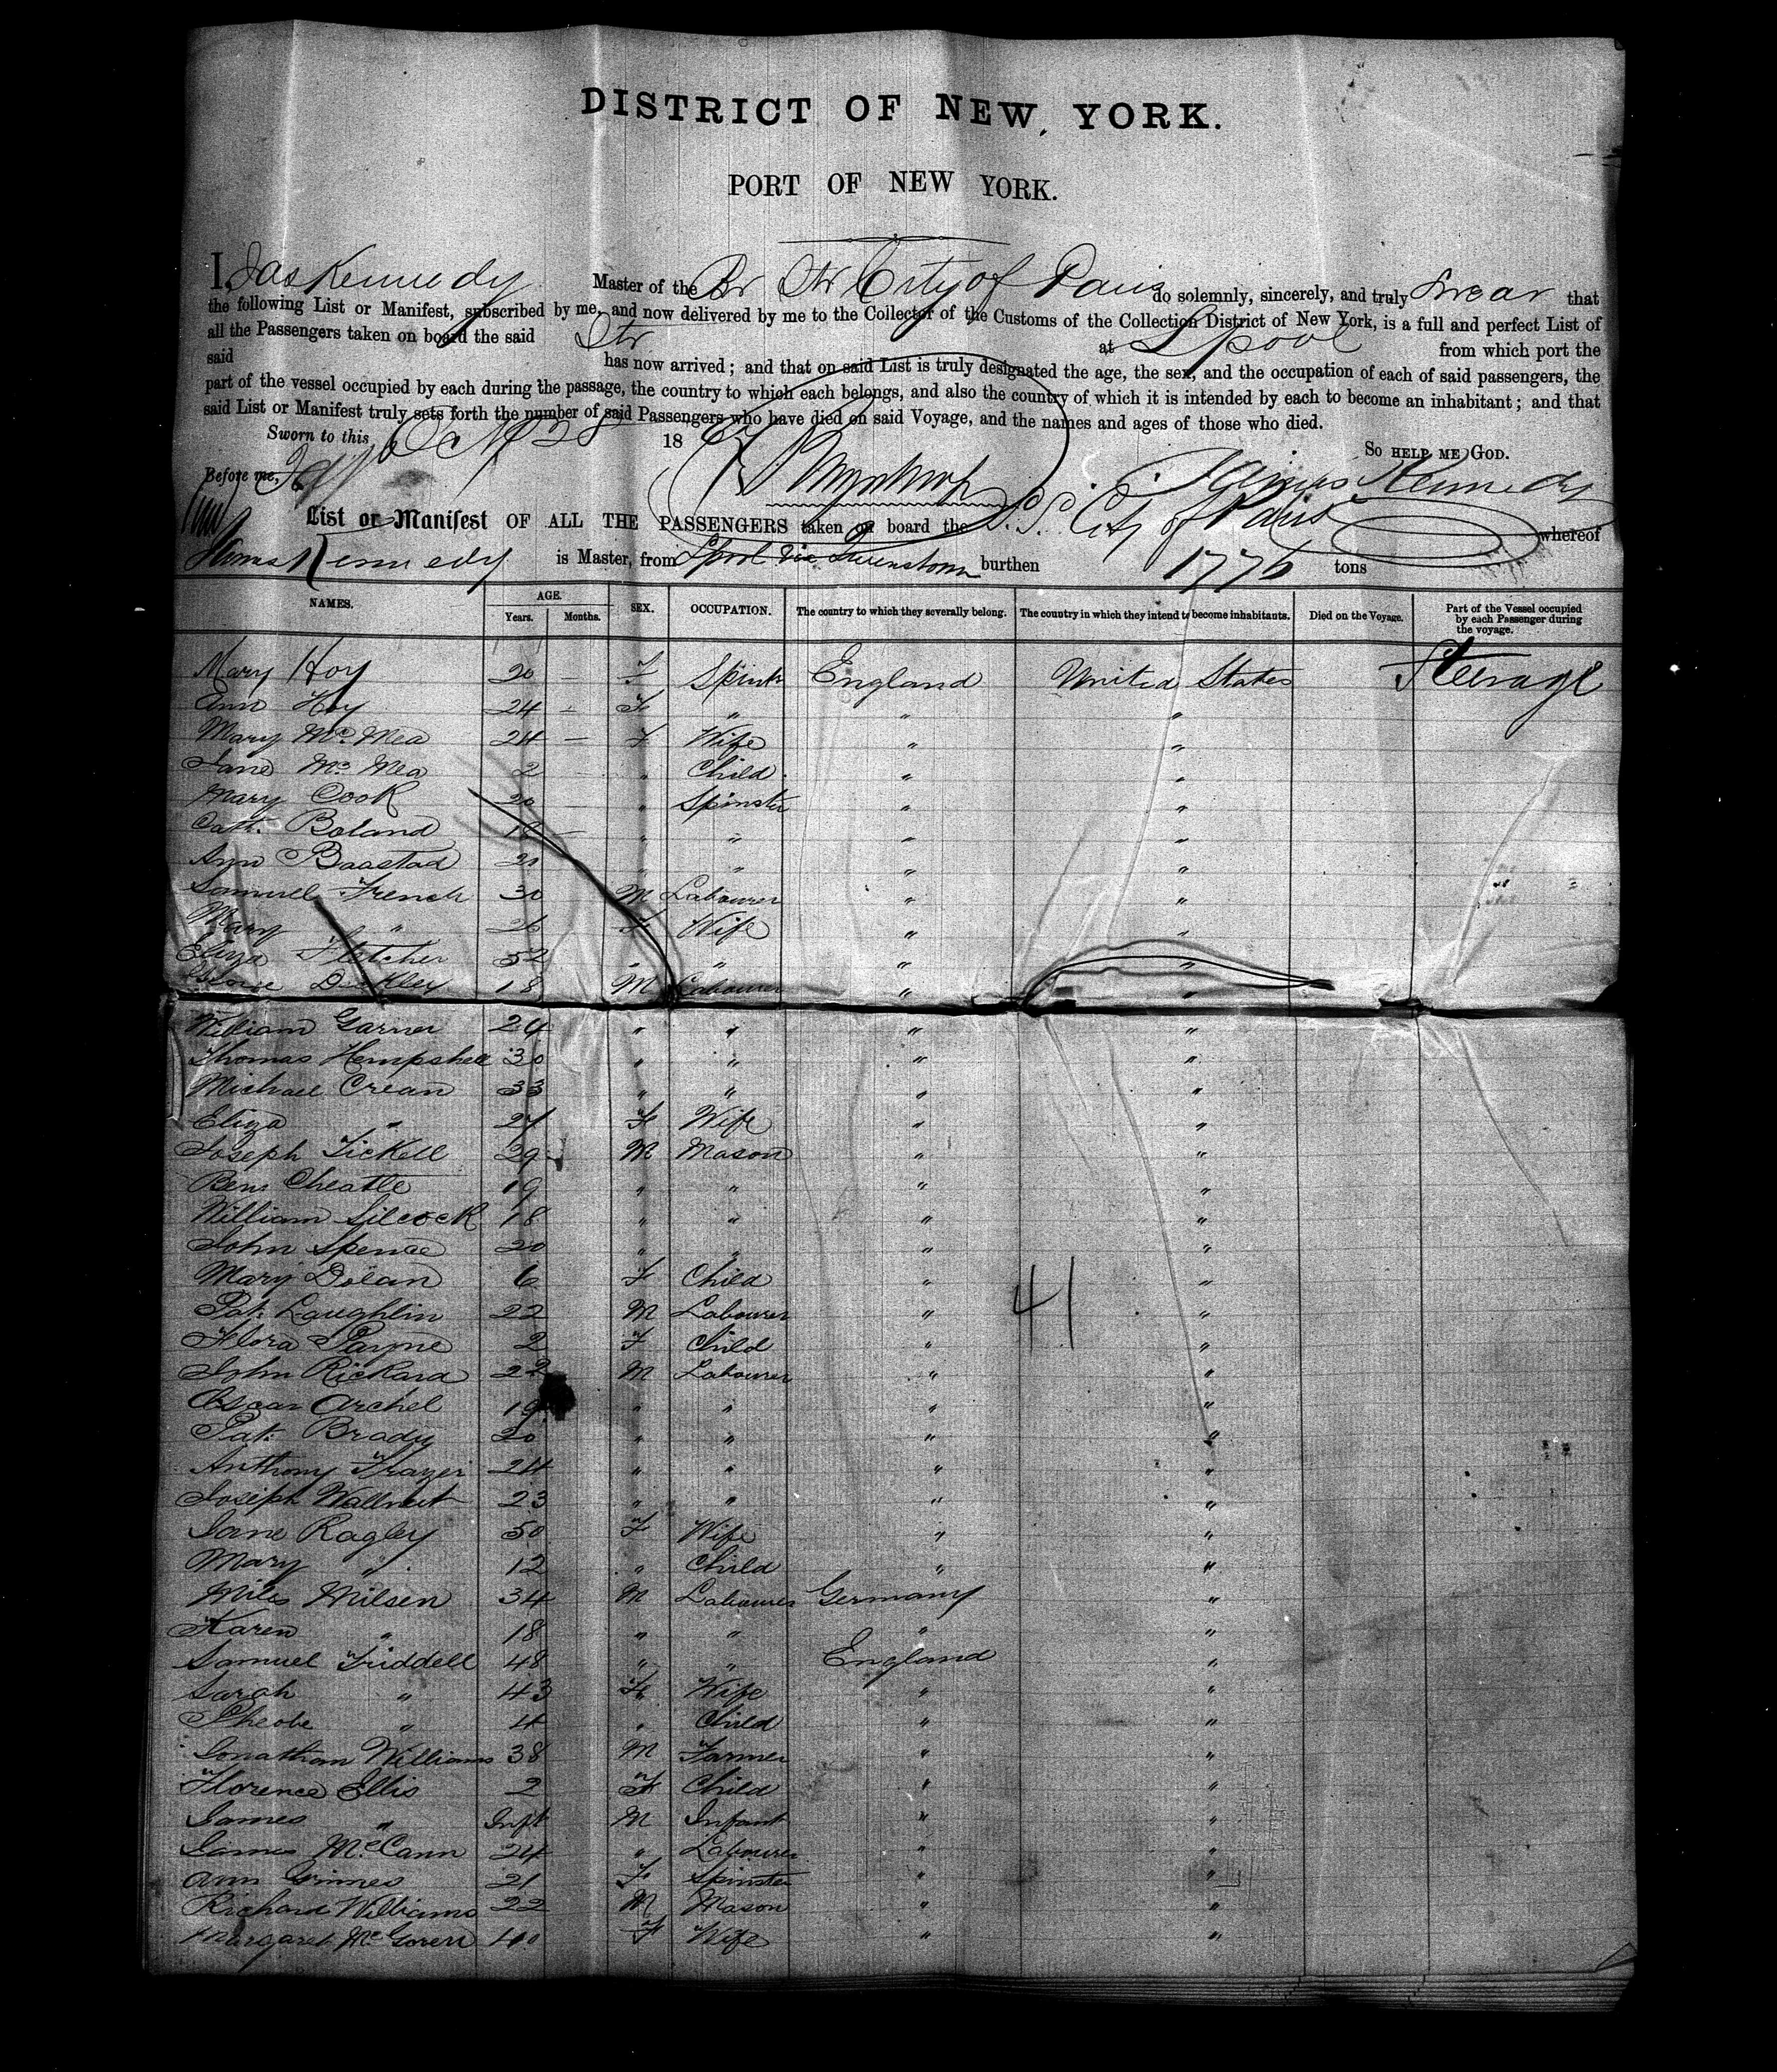 DISTRICT OF NEW YORK.
PORT OF NEW YORK.
I, Jas Kennedy Master of the Br Str City of Paris do solemnly, sincerely, and truly swear that
the following List or Manifest, subscribed by me, and now delivered by me to the Collector of the Customs of the Collection District of New York, is a full and perfect List of
all the Passengers taken on board the said Str at Lpool from which port the
said has now arrived; and that on said List is truly designated the age, the sex, and the occupation of each of said passengers, the
part of the vessel occupied by each during the passage, the country to which each belongs, and also the country of which it is intended by each to become an inhabitant; and that
said List or Manifest truly sets forth the number of said Passengers who have died on said Voyage, and the names and ages of those who died.
Sworn to this 18 So HELP ME GOD.
Before me, James Kennedy
List or Manifest OF ALL THE PASSENGERS taken on board the S.S. City of Paris whereof
Kennedy is Master, from Lpool via Queenstown burthen 1776 tons
NAMES. AGE. Years. Months. SEX. OCCUPATION. The country to which they severally belong. The country in which they intend to become inhabitants. Died on the Voyage. Part of the Vessel occupied by each Passenger during the voyage.
Mary Hoy 20 — F Spinstr England United States Steerage
Ann Hoy 24 — F " " "
Mary McMea 24 — F Wife " "
Jane McMea 2 " Child " "
Mary Cook 20 " Spinster " "
Cath. Boland 18 — " " " "
Ann 20 " " " "
Samuel French 30 M Labourer " "
Mary " 26 F Wife " "
Eliza Fletcher 52 " " " "
18 M Labourer " "
William Garner 24 " " " "
Thomas Hempshell 30 " " " "
Michael Crean 33 " " " "
Eliza " 27 F Wife " "
Joseph Tickell 29 M Mason " "
Benj Cheatle 19 " " " "
William Silcock 18 " " " "
John Spence 20 " " " "
Mary Dolan 6 F Child " "
41
Pat. Laughlin 22 M Labourer " "
Flora Payne 2 F Child " "
John Rickard 22 M Labourer " "
Oscar Archel 19 " " " "
Pat. Brady 20 " " " "
Anthony Frazer 24 " " " "
Joseph Wallnut 23 " " " "
Jane Ragley 50 F Wife " "
Mary " 12 " Child " "
Miles Nilsen 34 M Labourer Germany "
Karen " 18 " " " "
Samuel Triddell 48 " " England "
Sarah " 43 F Wife " "
Pheobe " 4 " Child " "
Jonathan Williams 38 M Farmer " "
Florence Ellis 2 F Child " "
James " Inft M Infant " "
James McCann 24 " Labourer " "
Ann Grimes 21 F Spinster " "
Richard Williams 22 M Mason " "
Margaret McGoren 40 F Wife " "